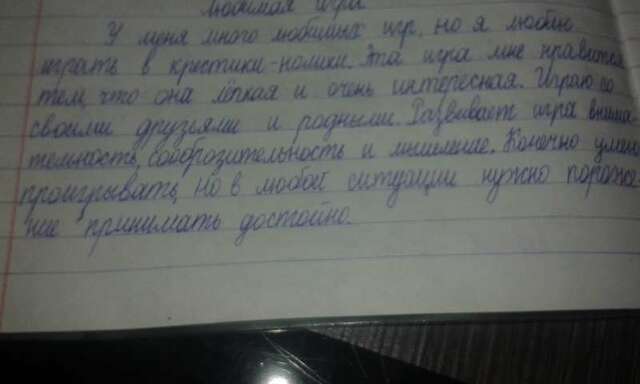 Любимая игра
У меня много любимых игр, но я люблю
играть в крестики-нолики. Эта игра мне нравится
тем, что она лёгкая и очень интересная. Играю со
своими друзьями и родными. Развивает игра внима
тельность, и мышление. Конечно
проигрывать, но в любой ситуации нужно
принимать достойно.